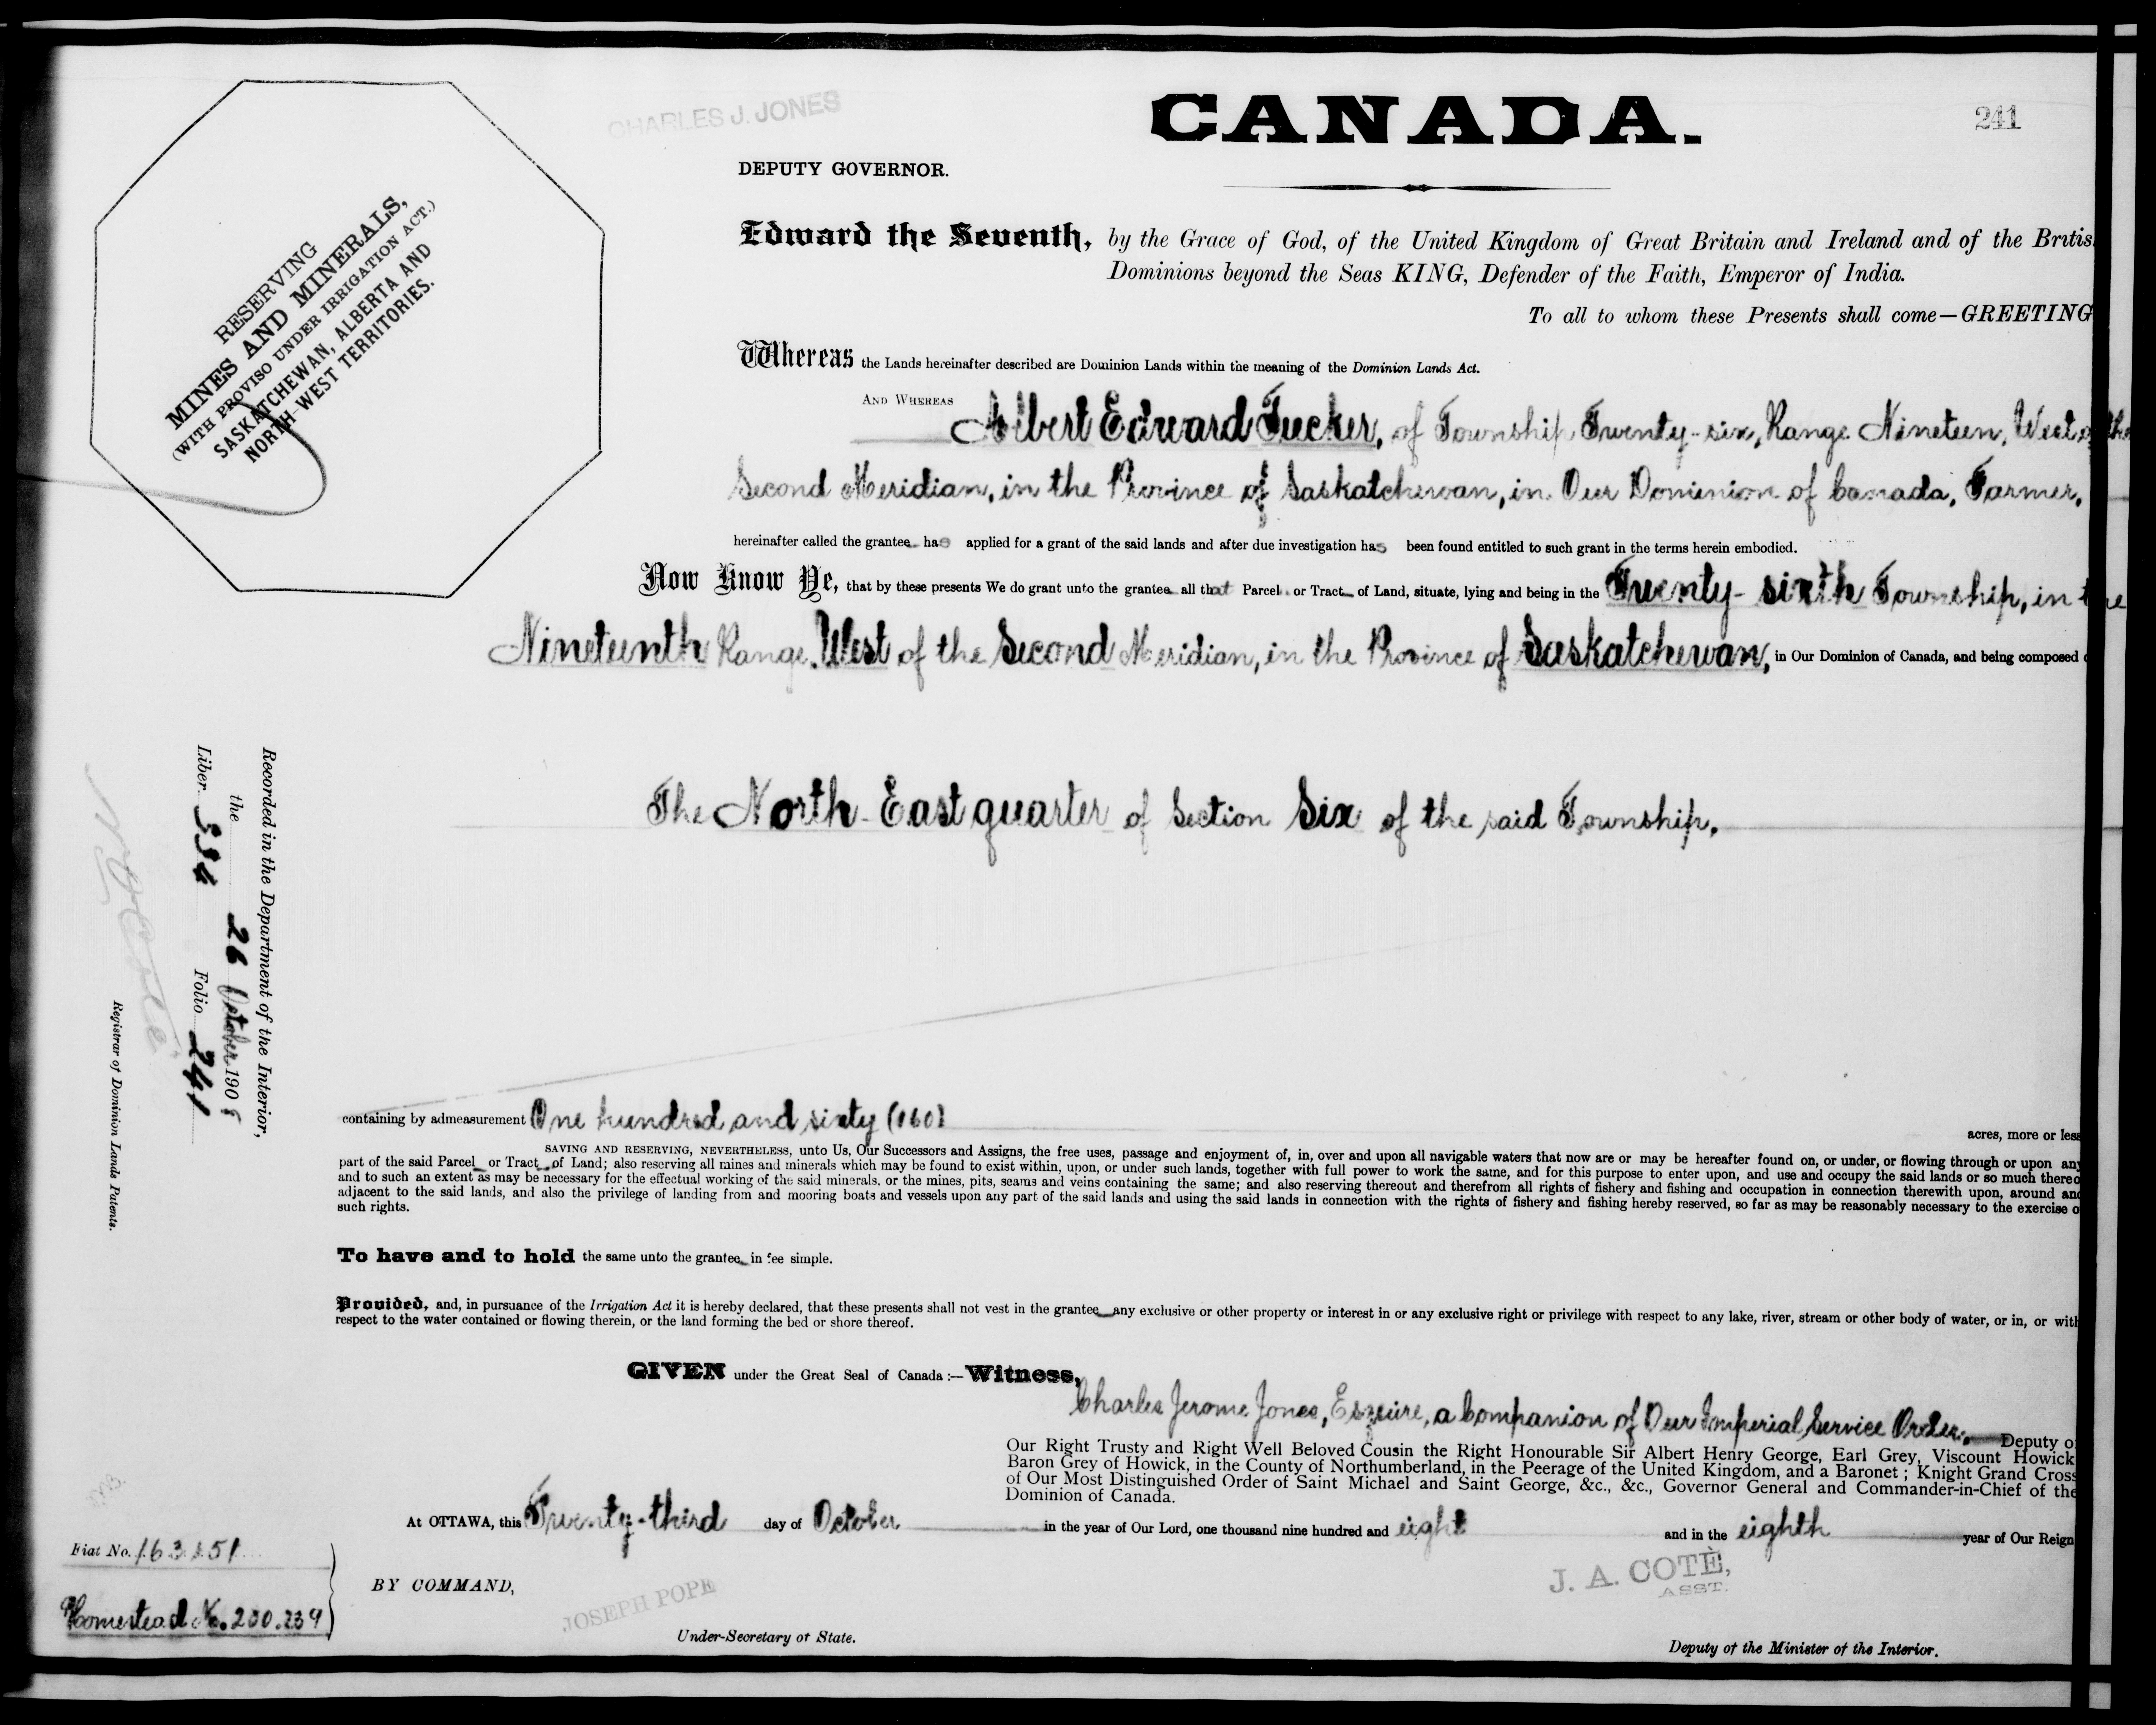 CHARLES J. JONES
CANADA.
241
DEPUTY GOVERNOR.
RESERVING
MINES AND MINERALS,
(WITH PROVISO UNDER IRRIGATION ACT.)
SASKATCHEWAN, ALBERTA AND
NORTH-WEST TERRITORIES.
Edward the Seventh, by the Grace of God, of the United Kingdom of Great Britain and Ireland and of the Britis
Dominions beyond the Seas KING, Defender of the Faith, Emperor of India.
To all to whom these Presents shall come—GREETING
Whereas the Lands hereinafter described are Dominion Lands within the meaning of the Dominion Lands Act.
AND WHEREAS
Albert Edward Tucker, of Township Twenty-six, Range Nineteen, West of the
Second Meridian, in the Province of Saskatchewan, in Our Dominion of Canada, Farmer,
hereinafter called the grantee has applied for a grant of the said lands and after due investigation has been found entitled to such grant in the terms herein embodied.
Now Know Ye, that by these presents We do grant unto the grantee all that Parcel or Tract of Land, situate, lying and being in the Twenty-sixth Township, in the
Nineteenth Range, West of the Second Meridian, in the Province of Saskatchewan, in Our Dominion of Canada, and being composed o
The North-East quarter of Section Six of the said Township.
Recorded in the Department of the Interior,
the 26 October 1908
Liber 334 Folio 241
Registrar of Dominion Lands Patents.
containing by admeasurement One hundred and sixty (160) acres, more or less
SAVING AND RESERVING, NEVERTHELESS, unto Us, Our Successors and Assigns, the free uses, passage and enjoyment of, in, over and upon all navigable waters that now are or may be hereafter found on, or under, or flowing through or upon any
part of the said Parcel or Tract of Land; also reserving all mines and minerals which may be found to exist within, upon, or under such lands, together with full power to work the same, and for this purpose to enter upon, and use and occupy the said lands or so much thereo
and to such an extent as may be necessary for the effectual working of the said minerals, or the mines, pits, seams and veins containing the same; and also reserving thereout and therefrom all rights of fishery and fishing and occupation in connection therewith upon, around and
adjacent to the said lands, and also the privilege of landing from and mooring boats and vessels upon any part of the said lands and using the said lands in connection with the rights of fishery and fishing hereby reserved, so far as may be reasonably necessary to the exercise o
such rights.
To have and to hold the same unto the grantee in fee simple.
Provided, and, in pursuance of the Irrigation Act it is hereby declared, that these presents shall not vest in the grantee any exclusive or other property or interest in or any exclusive right or privilege with respect to any lake, river, stream or other body of water, or in, or with
respect to the water contained or flowing therein, or the land forming the bed or shore thereof.
GIVEN under the Great Seal of Canada:—Witness,
Charles Jerome Jones, Esquire, a Companion of Our Imperial Service Order, Deputy o
Our Right Trusty and Right Well Beloved Cousin the Right Honourable Sir Albert Henry George, Earl Grey, Viscount Howick
Baron Grey of Howick, in the County of Northumberland, in the Peerage of the United Kingdom, and a Baronet; Knight Grand Cross
of Our Most Distinguished Order of Saint Michael and Saint George, &c., &c., Governor General and Commander-in-Chief of the
Dominion of Canada.
At OTTAWA, this Twenty-third day of October in the year of Our Lord, one thousand nine hundred and eight and in the eighth year of Our Reign
Fiat No. 163151
BY COMMAND,
J. A. COTÈ,
ASST.
Homestead No. 200.239
JOSEPH POPE
Under-Secretary of State.
Deputy of the Minister of the Interior.